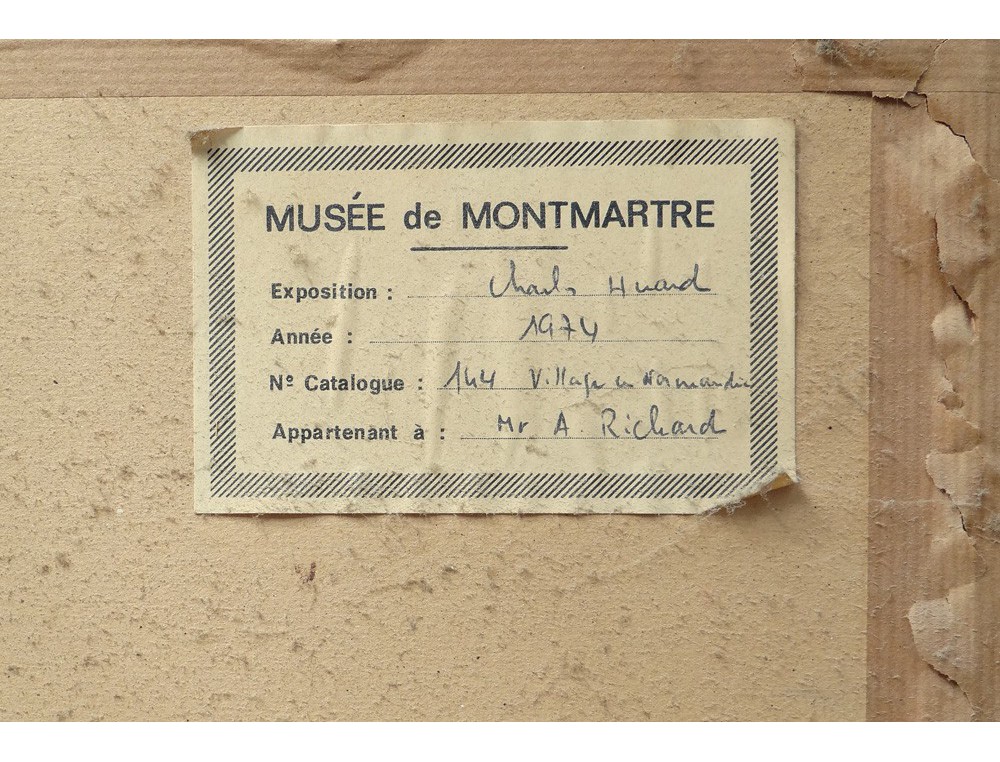 MUSÉE de MONTMARTRE
Exposition : Charles Huard
Année : 1974
Nº Catalogue : 144 Village en Normandie
Appartenant à : Mr A. Richard